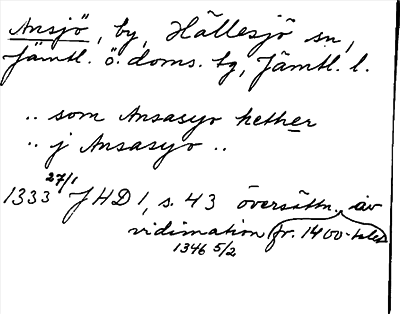 Ansjö, by, Hällesjö sn,
Jämtl. ö. doms. tg, Jämtl. l.
.. som Ansasyo hether
.. j Ansasyo ..
1333 27/1 JHD 1, s. 43 översättn. av
vidimation fr. 1400-talet
1346 5/2